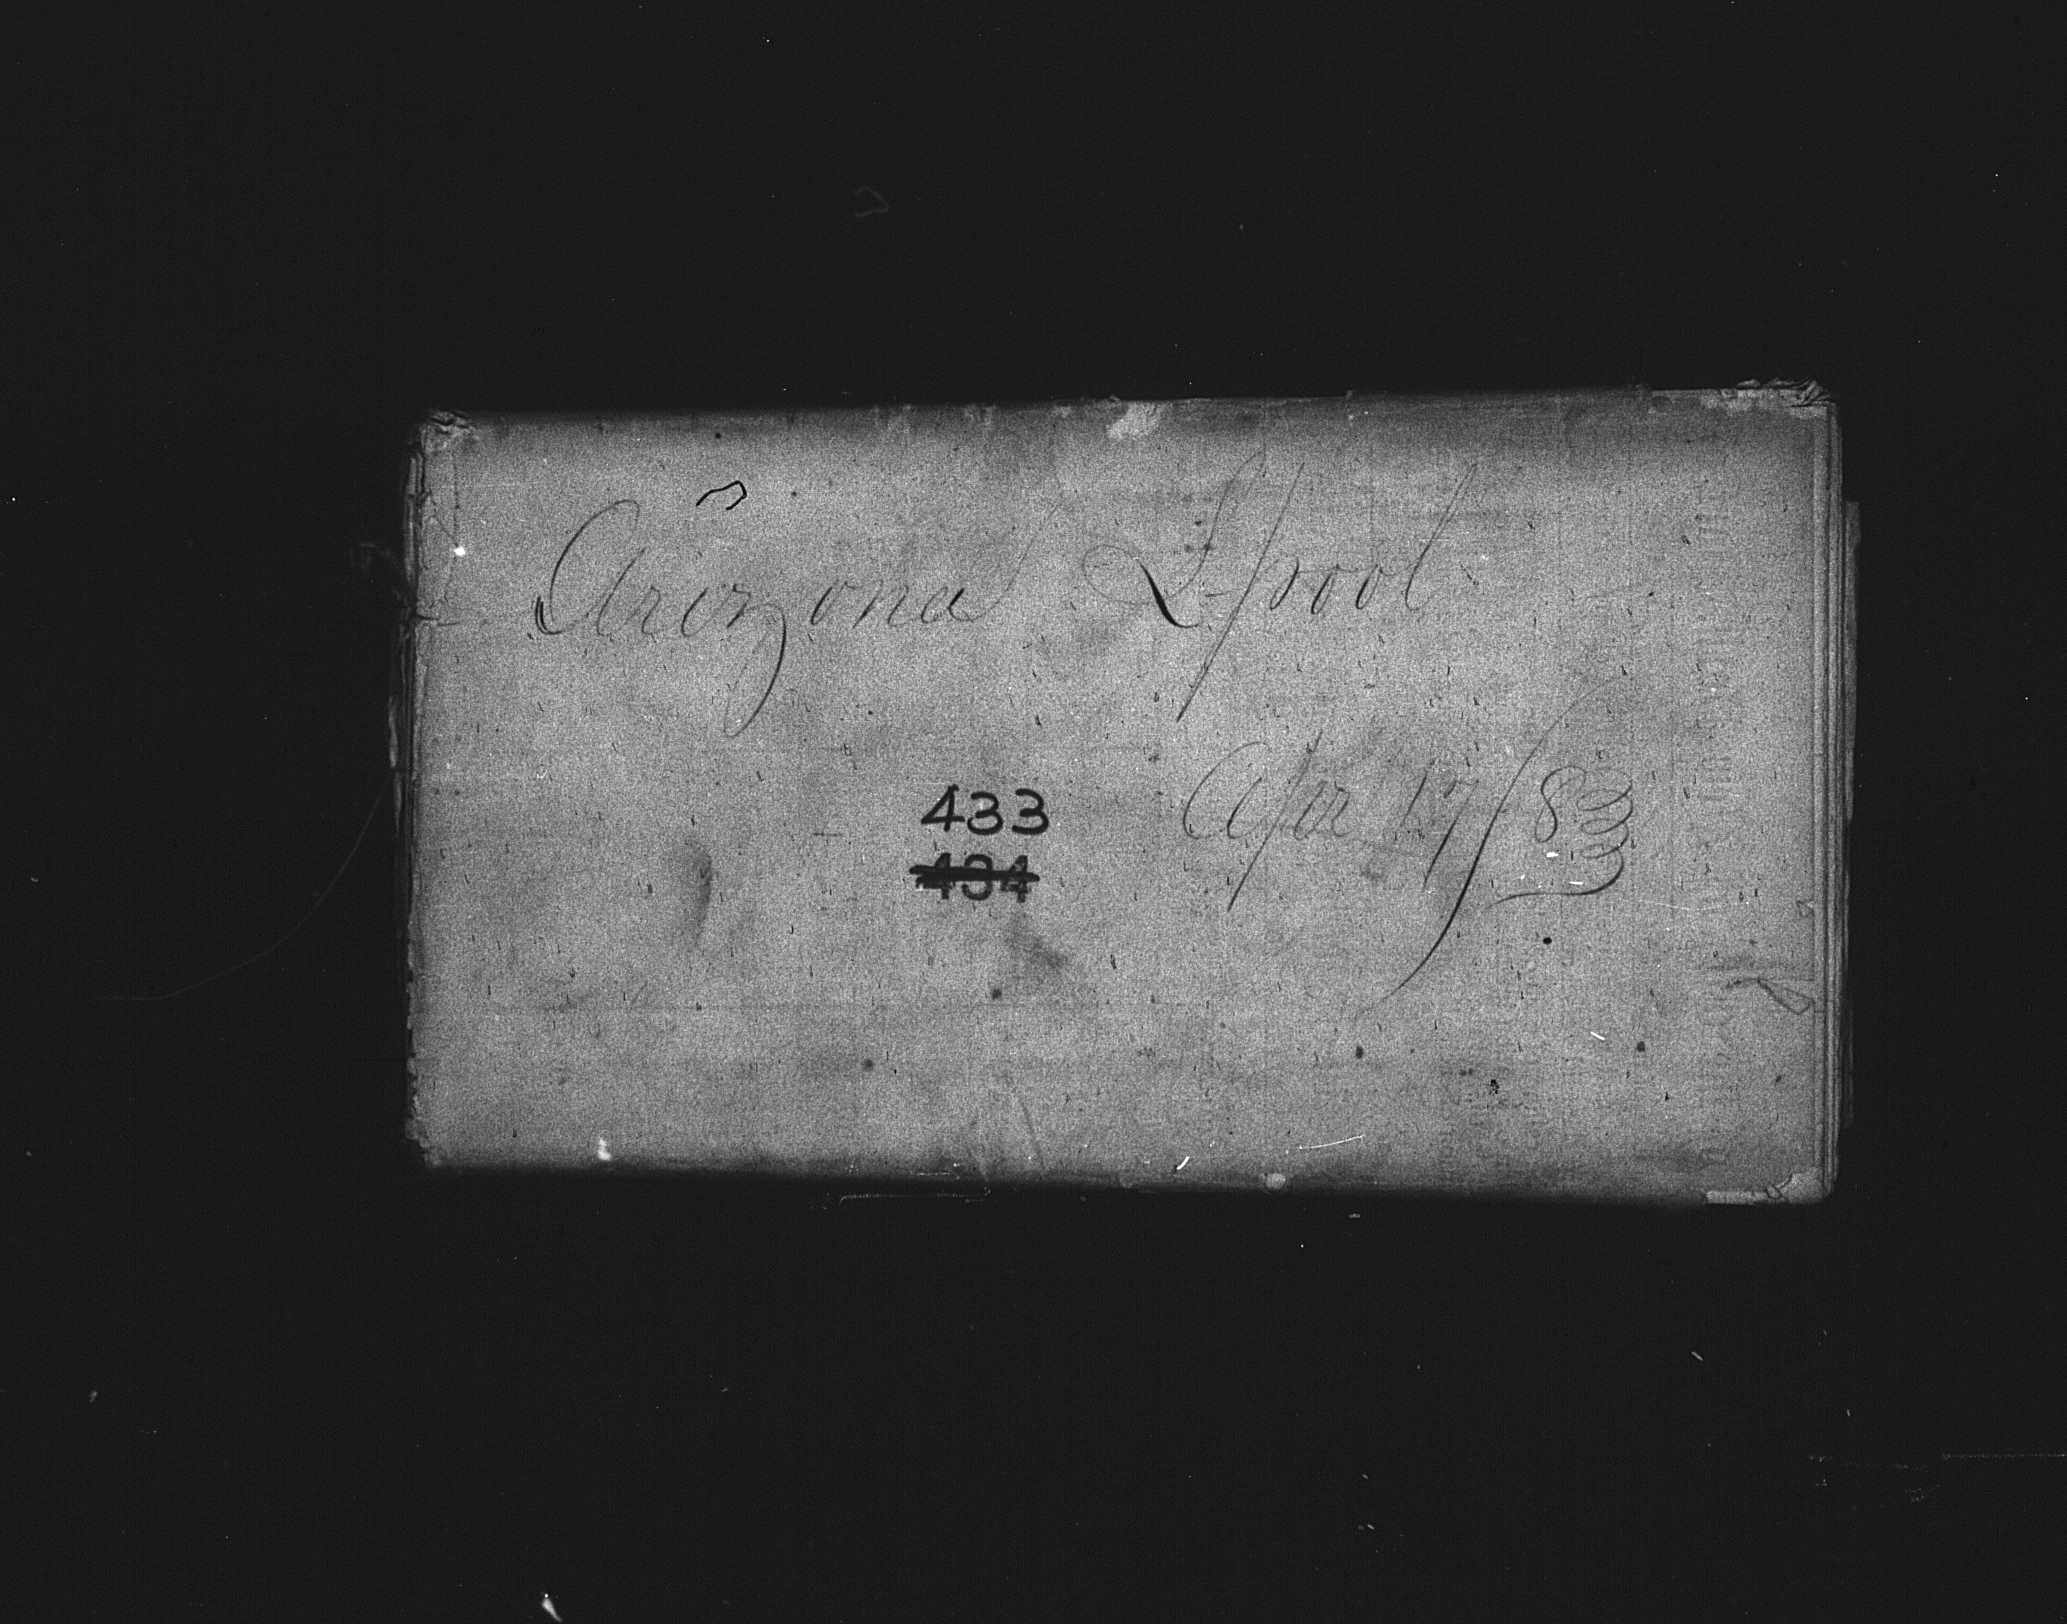 Arizona L-pool
Apr 17/83
433
434